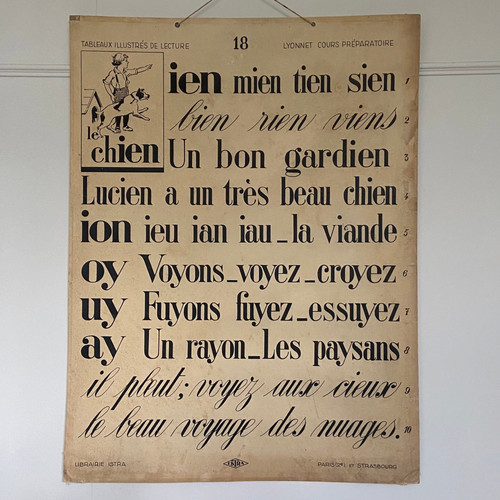 TABLEAUX ILLUSTRÉS DE LECTURE 18 LYONNET COURS PRÉPARATOIRE
le chien
ien mien tien sien 1
bien rien viens 2
Un bon gardien 3
Lucien a un très beau chien 4
ion ieu ian iau_la viande 5
oy Voyons_voyez_croyez 6
uy Fuyons fuyez_essuyez 7
ay Un rayon_Les paysans 8
il pleut; voyez aux cieux 9
le beau voyage des nuages. 10
LIBRAIRIE ISTRA ISTRA PARIS et STRASBOURG